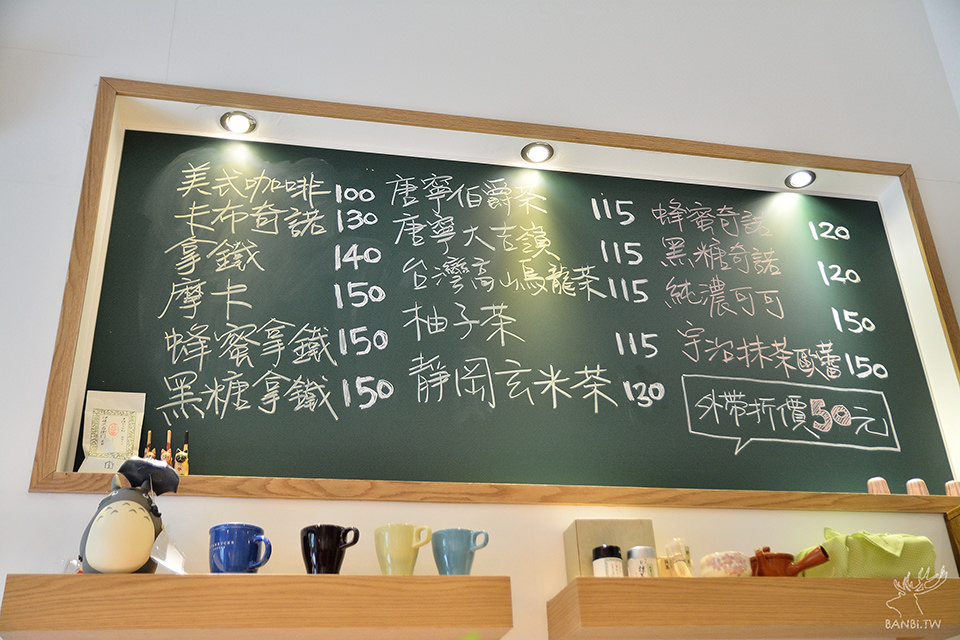 美式咖啡 100
卡布奇諾 130
拿鐵 140
摩卡 150
蜂蜜拿鐵 150
黑糖拿鐵 150
唐寧伯爵茶 115
唐寧大吉嶺 115
台灣高山烏龍茶 115
柚子茶 115
靜岡玄米茶 130
蜂蜜奇諾 120
黑糖奇諾 120
純濃可可 150
宇治抹茶歐蕾 150
外帶折價50元
BANBI.TW